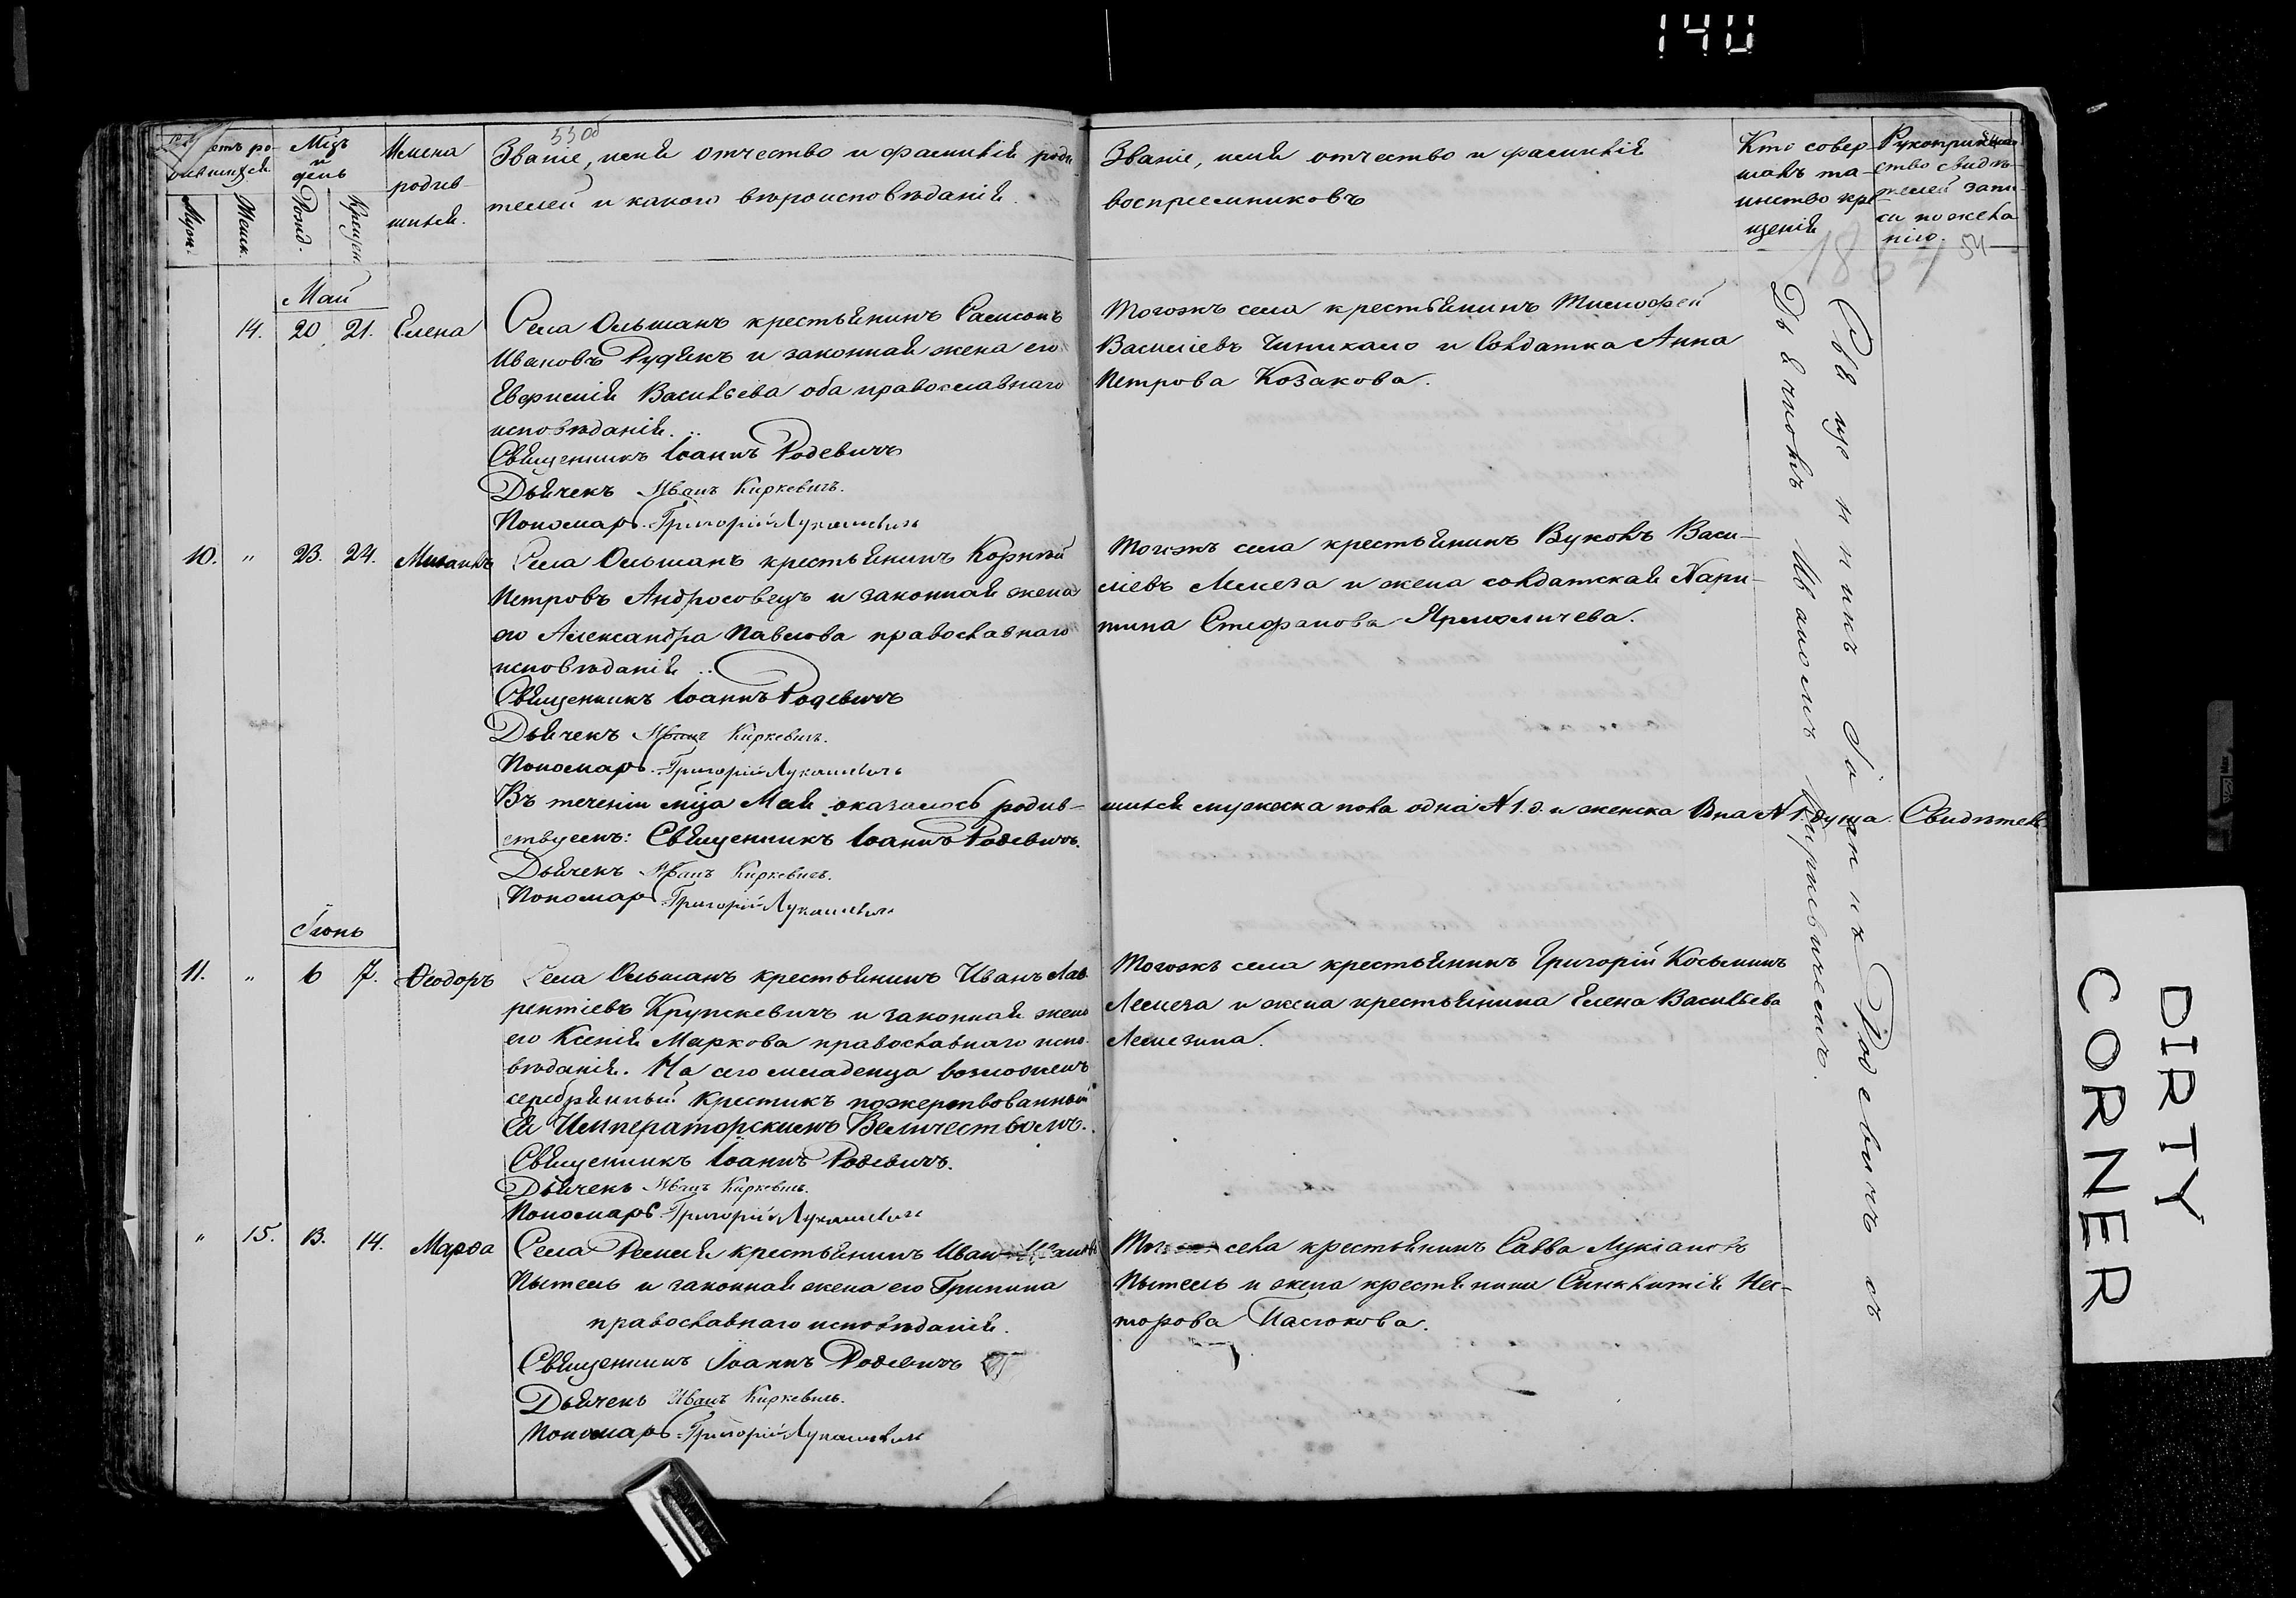 140
53об
Счетъ ро-
дившихся
Муж.
Женск.
Мѣсяцъ
и
день
Рожд.
Крещен.
Имена
родив-
шихся.
Званіе, имя отчество и фамилія роди
телей и какого вѣроисповѣданія.
Званіе, имя отчество и фамилія
воспріемниковъ
Кто совер-
шалъ та-
инство кре
щенія
Рукоприклад
ство свидѣ-
телей запи-
си по жела
нію.
54
Май
14. 20 21. Елена
Села Ольманъ крестьянинъ Самсонъ
Ивановъ Рудякъ и законная жена его
Евфимія Васильева оба православнаго
исповѣданія.
Священникъ Іоаннъ Родевичъ
Дьячекъ Иванъ Киркевичъ.
Пономарь Григорій Лукашевичъ
Тогожъ села крестьянинъ Тимофей
Василіевъ Чинкало и солдатка Анна
Петрова Козакова.
10. " 23. 24. Михаилъ
Села Ольманъ крестьянинъ Корній
Петровъ Андросовецъ и законная жена
его Александра Павлова православнаго
исповѣданія
Священникъ Іоаннъ Родевичъ
Дьячекъ Иванъ Киркевичъ.
Пономарь Григорій Лукашевичъ
Тогожъ села крестьянинъ Вуколъ Васи-
ліевъ Лемеза и жена солдатская Хари-
тина Стефанова Ярмоличева.
Въ теченіи мца Мая оказалось родив-
шихся мужеска пола одна № 1. д. и женска одна № 1 душа. Свидѣтель-
ствуемъ: Священникъ Іоаннъ Родевичъ.
Дьячекъ Иванъ Киркевичъ.
Пономарь Григорій Лукашевичъ
Іюнь
11. " 6 7. Ѳеодоръ
Села Ольманъ крестьянинъ Иванъ Лав
рентіевъ Крупскевичъ и законная жена
его Ксенія Маркова православнаго испо-
вѣданія. На сего младенца возложенъ
серебрянный крестикъ пожертвованный
Ея Императорскимъ Величествомъ.
Священникъ Іоаннъ Родевичъ.
Дьячекъ Иванъ Киркевичъ.
Пономарь Григорій Лукашевичъ
Тогожъ села крестьянинъ Григорій Косьминъ
Лемеза и жена крестьянина Елена Васильева
Лемезина.
" 15. 13. 14. Марѳа
Села Ремля крестьянинъ Иван
Пытель и законная жена его Грипина
православнаго исповѣданія.
Священникъ Іоаннъ Родевичъ
Дьячекъ Иванъ Киркевичъ.
Пономарь Григорій Лукашевичъ
села крестьянинъ Савва Лукіановъ
Пытель и жена крестянина Синклитія Нес-
торова Пасюкова.
Священникъ Іоаннъ Родевичъ съ
Дьячкомъ Иваномъ Киркевичемъ.
DIRTY
CORNER